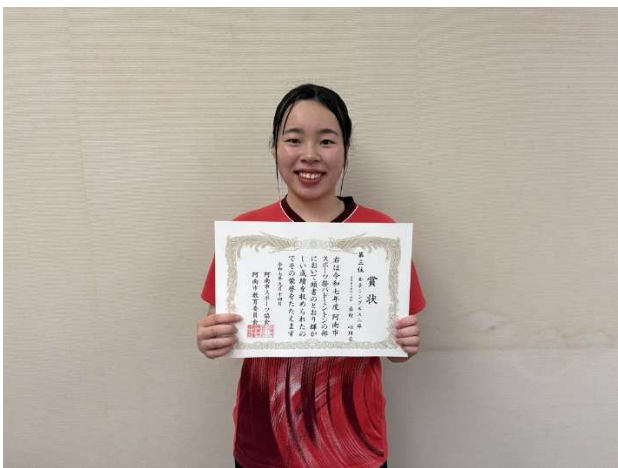 賞状
第三位 女子シングルス
右は令和七年度 阿南市
スポーツ祭バドミントンの部
において頭書のとおり輝か
しい成績を収められたの
でその栄誉をたたえます
阿南市スポーツ協会
阿南市教育委員会